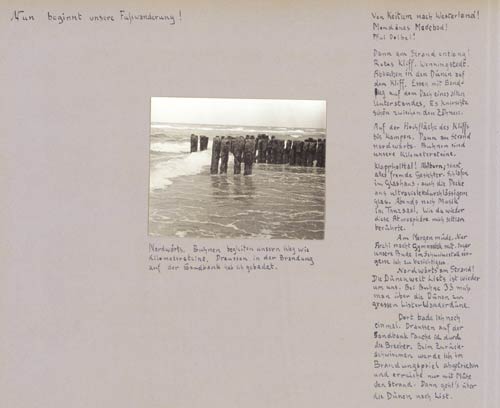 Nun beginnt unsere Fußwanderung!
Nordwärts. Buhnen begleiten unsern Weg wie
Kilometersteine. Draussen in der Brandung
auf der Sandbank hab ich gebadet.
Von Keitum nach Westerland!
Mondänes Modebad!
Pfui Deibel!
Dann am Strand entlang!
Rotes Kliff. Wenningstedt.
Abkochen in den Dünen auf
dem Kliff. Essen mit Bande
auf dem Dach eines alten
Unterstandes. Es knirschte
schön zwischen den Zähnen.
Auf der Hochfläche des Kliffs
bis Kampen. Dann am Strand
nordwärts. Buhnen sind
unsere Kilometersteine.
Klappholttal! sonst
alles fremde Gesichter. Schlafen
im Glashaus - auch die Decke
aus ultraviolettdurchlässigem
Glas. Abends noch Musik
im Tanzsaal. Wie da wieder
diese Atmosphäre mich selten
berührte.
Am Morgen müde. Nur
Archi macht Gymnastik mit.
unsere Bude im
gern ich zu besichtigen.
Nordwärts am Strand!
Die Dünenwelt Lists ist wieder
um uns. Bei Buhne 33 muß
man über die Dünen zur
grossen Lister Wanderdüne.
Dort bade ich noch
einmal. Draussen auf der
Sandbank tauche ich durch
die Brecher. Beim Zurück-
schwimmen werde ich im
Brandungspriel abgetrieben
und erreiche nur mit Mühe
den Strand. Dann geht's über
die Dünen nach List.